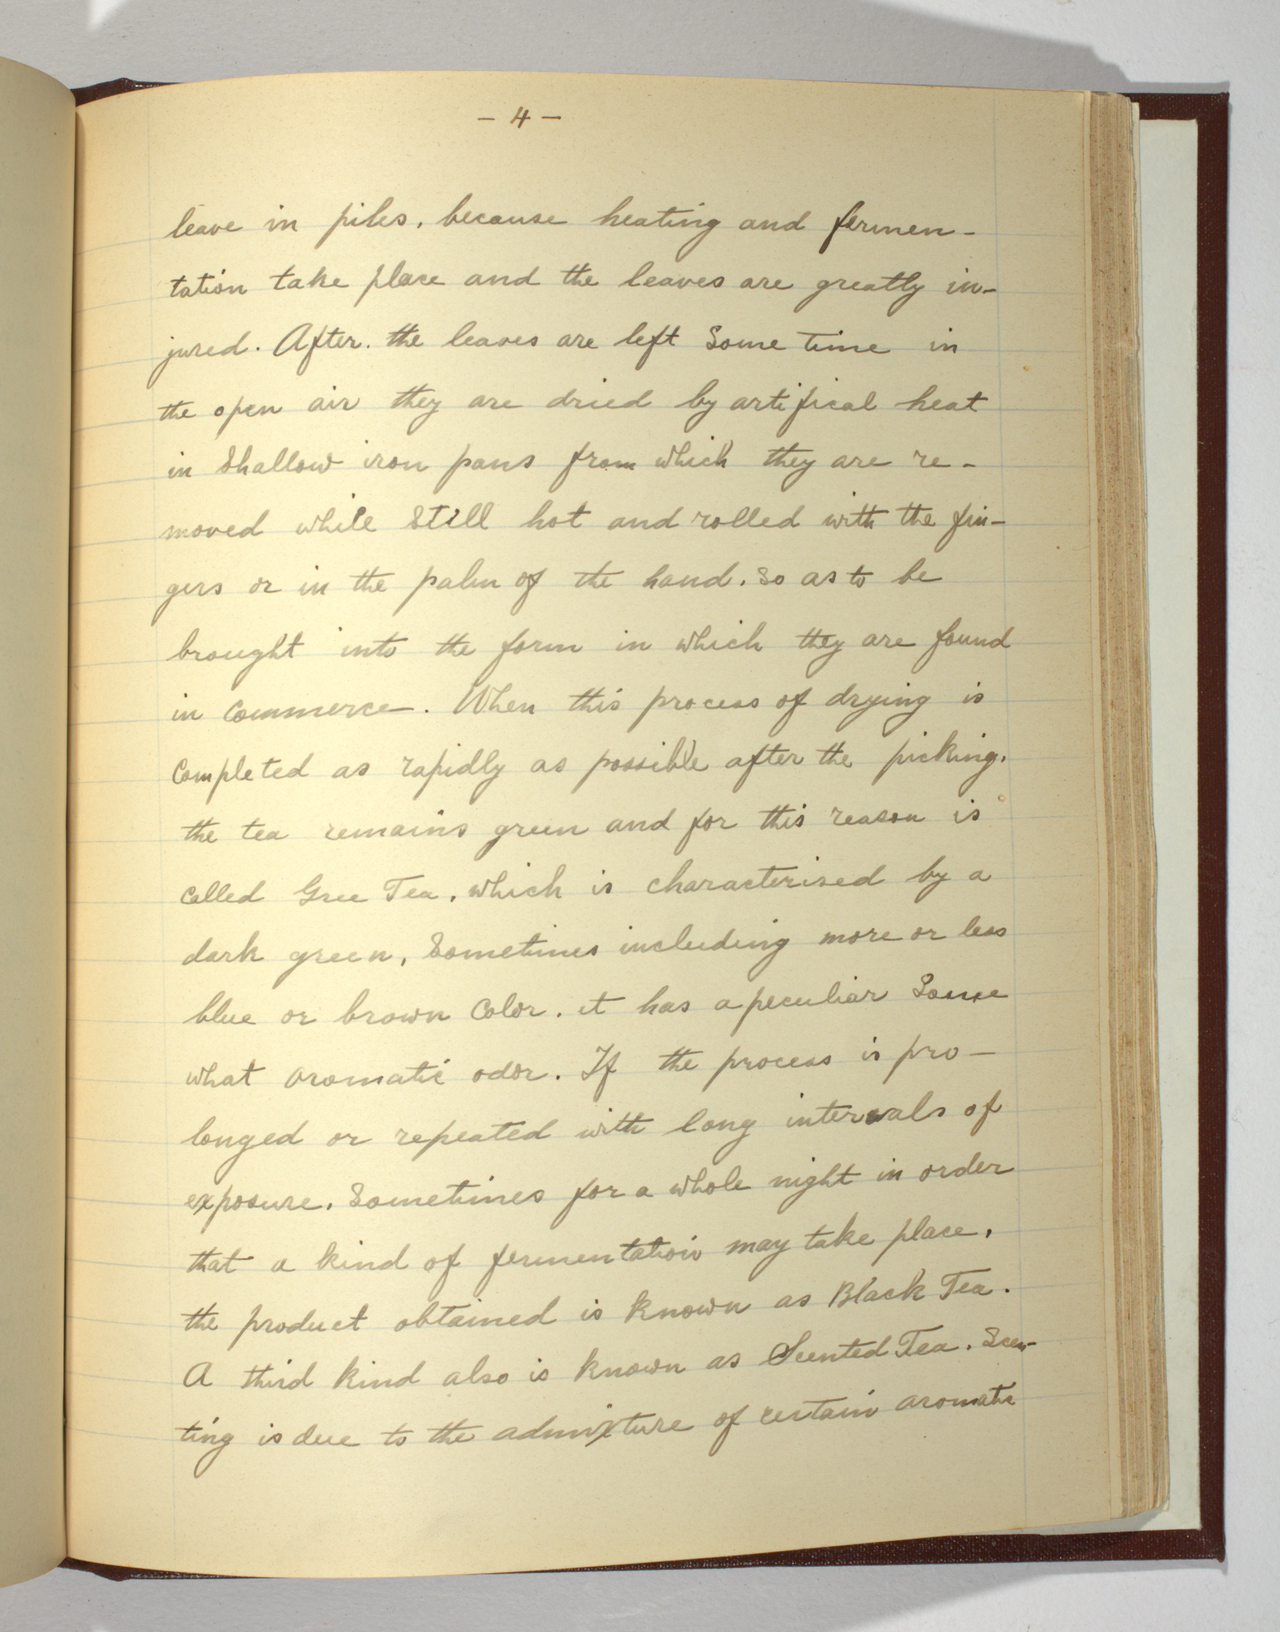 - 4 -
leave in piles, because heating and fermen-
tation take place and the leaves are greatly in-
jured. After. the leaves are left Some time in
the open air they are dried by artifical heat
in Shallow iron pans from which they are re-
moved while Still hot and rolled with the fin-
gers or in the palm of the hand. So as to be
brought into the form in which they are found
in Commerce. When this process of drying is
Completed as rapidly as possible after the picking.
the tea remains green and for this reason is
Called Gree Tea, which is characterised by a
dark green, Sometimes including more or less
blue or brown Color. it has a peculiar Some
what aromatic odor. If the process is pro-
longed or repeated with long intervals of
exposure. Sometimes for a whole night in order
that a kind of fermentation may take place,
the product obtained is Known as Black Tea.
A third Kind also is Known as Scented Tea. Scen-
ting is due to the admixture of certain aromatic